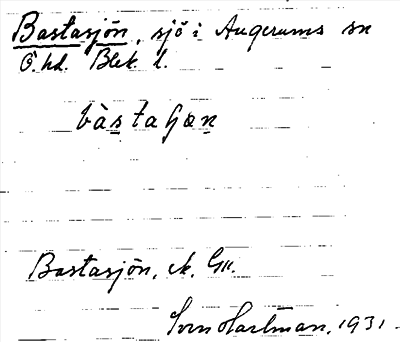 Bastasjön, sjö i Augerums sn
Ö. hd. Blek. l.
bàstaɧøn
Bastasjön, ek. Gst.
Sven Hartman, 1931.